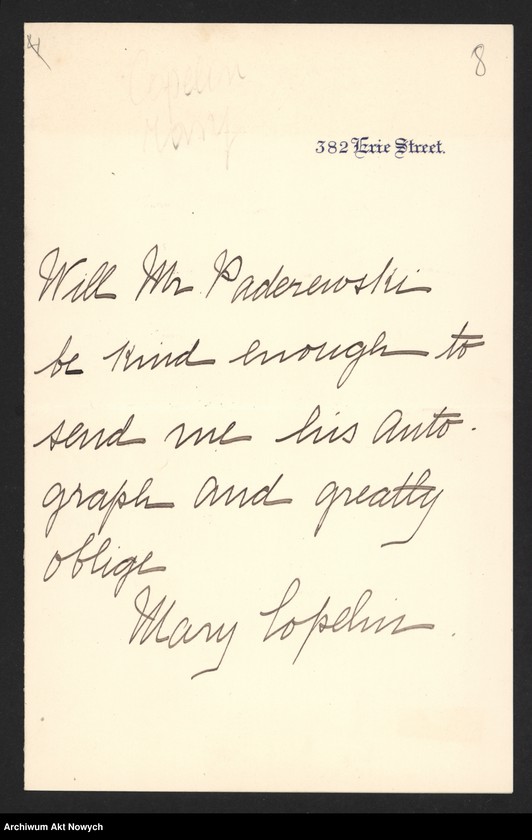 4
8
Copelin
Mary
382 Erie Street.
Will Mr Paderewski
be kind enough to
send me his Auto-
graph and greatly
oblige
Mary Copelin.
Archiwum Akt Nowych